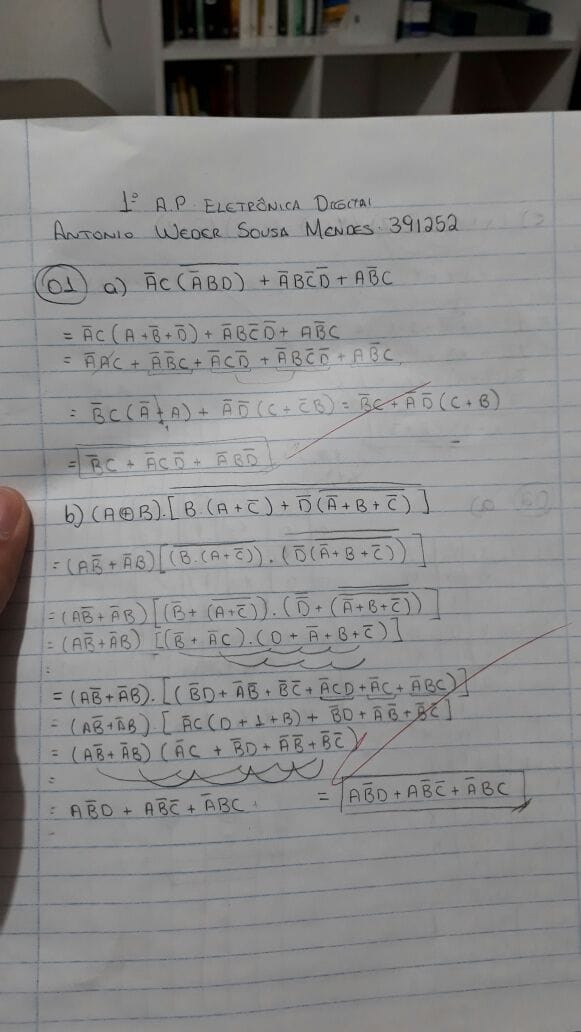 1º A.P. ELETRÔNICA DIGITAL
ANTONIO WEDER SOUSA MENDES. 391252
01 a) A̅C(\overline{A̅BD}) + A̅BC̅D̅ + AB̅C
= A̅C(A+B̅+D̅) + A̅BC̅D̅ + AB̅C
= A̅AC + A̅B̅C + A̅CD̅ + A̅BC̅D̅ + AB̅C
= B̅C(A̅+A) + A̅D̅(C+C̅B) = B̅C + A̅D̅(C+B)
1
= B̅C + A̅CD̅ + A̅BD̅
b) (A⊕B).[\overline{B.(A+C̅) + D̅(\overline{A̅+B+C̅})}]
= (AB̅+A̅B)[(\overline{B.(A+C̅)}).(\overline{D̅(\overline{A̅+B+C̅})})]
= (AB̅+A̅B)[(B̅+(\overline{A+C̅})).(\overline{D̅}+(\overline{\overline{A̅+B+C̅}}))]
= (AB̅+A̅B) [(B̅+A̅C).(D+A̅+B+C̅)]
:
= (AB̅+A̅B).[(B̅D+A̅B̅+B̅C̅+A̅CD+A̅C+A̅BC)]
= (AB̅+A̅B).[A̅C(D+1+B)+B̅D+A̅B̅+B̅C̅]
= (AB̅+A̅B)(A̅C+B̅D+A̅B̅+B̅C̅)
=
= AB̅D + AB̅C̅ + A̅BC. = AB̅D+AB̅C̅+A̅BC